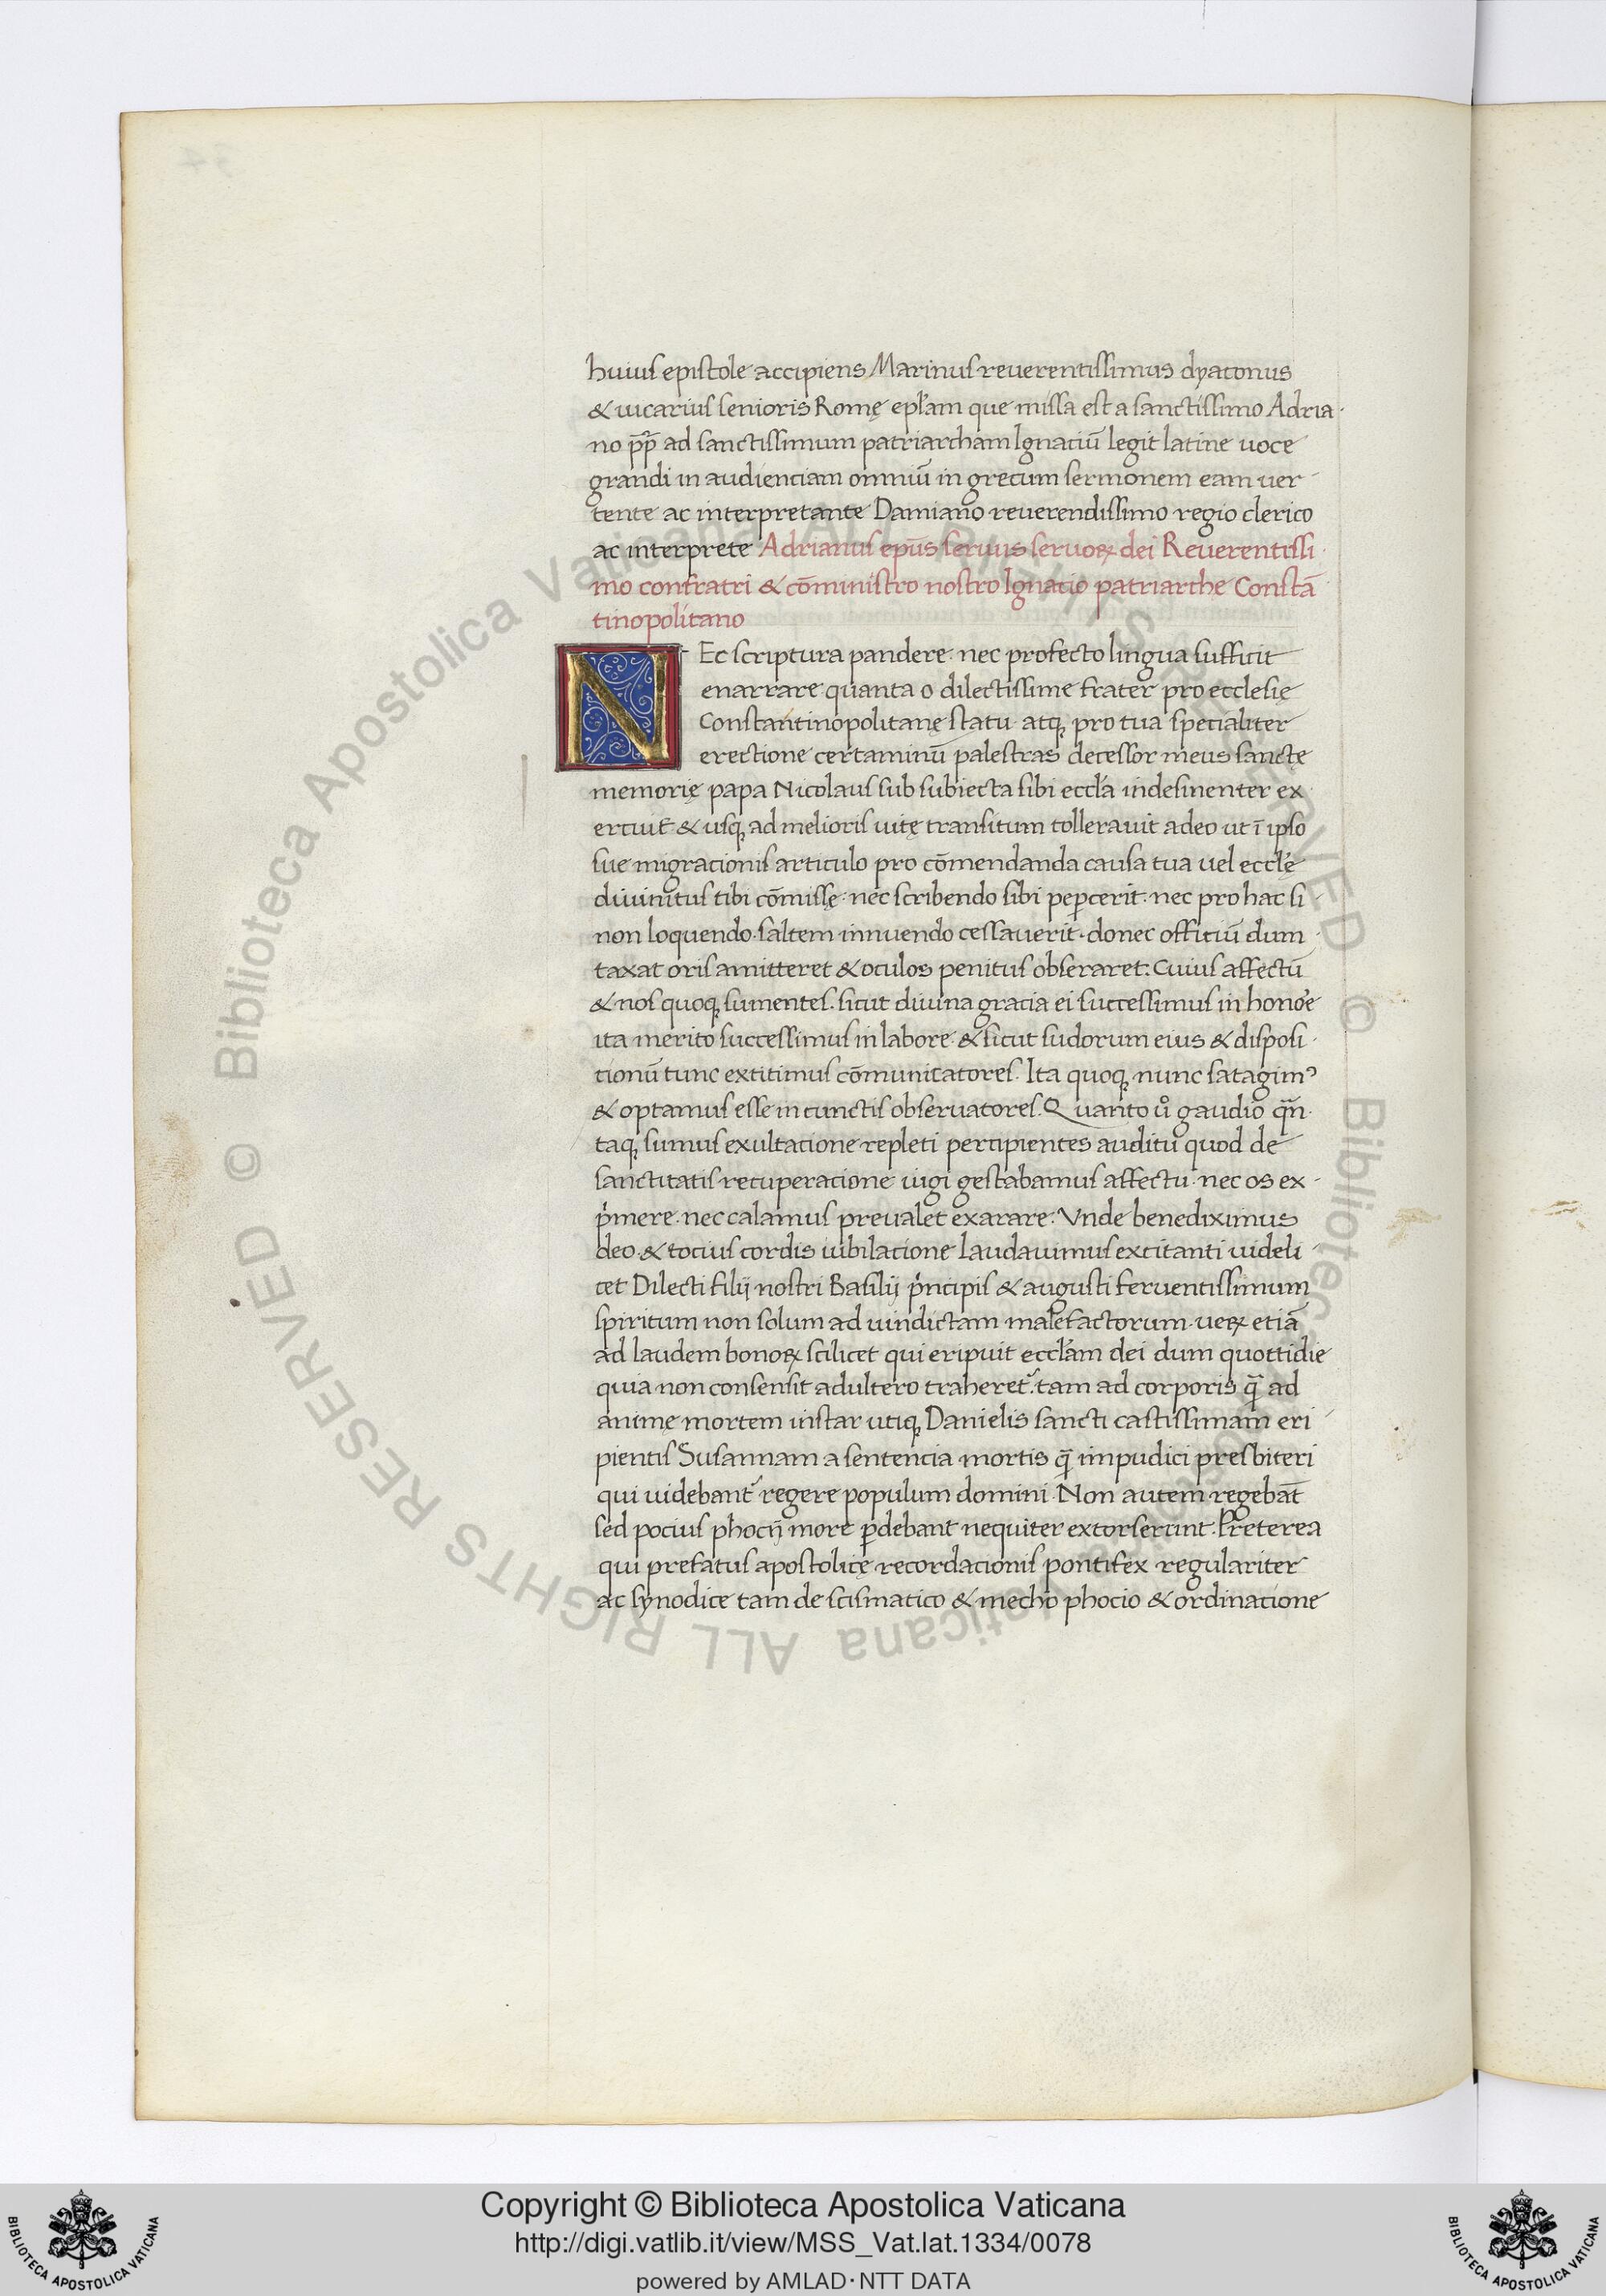 huius epistole accipiens Marinus reuerentissimus dyaconus
& uicarius senioris Romę epl̄am que missa est a sanctissimo Adria
no pp̄ ad sanctissimum patriarcham Ignaciū legit latine uoce
grandi in audienciam omniū in grecum sermonem eam uer
tente ac interpretante Damiano reuerendissimo regio clerico
ac interprete Adrianus ep̄us seruus seruoꝝ dei Reuerentissi
mo confratri & cōministro nostro Ignacio patriarche Constā
tinopolitano
NEc scriptura pandere nec profecto lingua sufficit
enarrare quanta o dilectissime frater pro ecclesię
Constantinopolitanę statu atqꝫ pro tua specialiter
erectione certaminū palestras decessor meus sanctę
memorię papa Nicolaus sub subiecta sibi eccl̄a indesinenter ex
ercuit & usqꝫ ad melioris uitę transitum tollerauit adeo ut ī ipso
sue migracionis articulo pro cōmendanda causa tua uel eccl̄e
diuinitus tibi cōmissę nec scribendo sibi peꝑcerit nec pro hac si
non loquendo saltem innuendo cessauerit donec officiū dum
taxat oris amitteret & oculos penitus obseraret: Cuius affectū
& nos quoqꝫ sumentes. sicut diuina gracia ei successimus in honore
ita merito successimus in labore & sicut sudorum eius & disposi
tionū tunc extitimus cōmunicatores. Ita quoqꝫ nunc satagimꝰ
& optamus esse in cunctis obseruatores. Quanto ů gaudio qūn
taqꝫ sumus exultacione repleti percipientes auditu quod de
sanctitatis recuperacione iugi gestabamus affectu nec os ex
p̍mere nec calamus preualet exarare. Vnde benediximus
deo & tocius cordis iubilacione laudauimus excitanti uideli
cet Dilecti filij nostri Basilij p̍ncipis & augusti feruentissimum
spiritum non solum ad uindictam malefactorum ueꝝ etiā
ad laudem bonoꝝ scilicet qui eripuit eccl̄am dei dum quottidie
quia non consensit adultero traheret᷑ tam ad corporis q̄ ad
animę mortem instar utiqꝫ Danielis sancti castissimam eri
pientis Susannam a sentencia mortis q̄ impudici presbiteri
qui uidebant᷑ regere populum domini Non autem regebāt
sed pocius phocij more ꝑdebant nequiter extorserunt. Preterea
qui prefatus apostolicę recordacionis pontifex regulariter
ac synodice tam de scismatico & mecho phocio & ordinacione
Copyright © Biblioteca Apostolica Vaticana
http://digi.vatlib.it/view/MSS_Vat.lat.1334/0078
powered by AMLAD·NTT DATA
BIBLIOTECA APOSTOLICA VATICANA
BIBLIOTECA APOSTOLICA VATICANA
© Biblioteca Apostolica Vaticana ALL RIGHTS RESERVED © Biblioteca Apostolica Vaticana ALL RIGHTS RESERVED